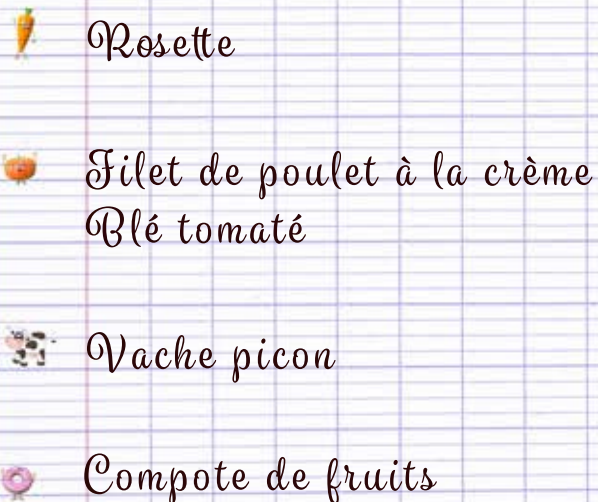 Rosette
Filet de poulet à la crème
Blé tomaté
Vache picon
Compote de fruits